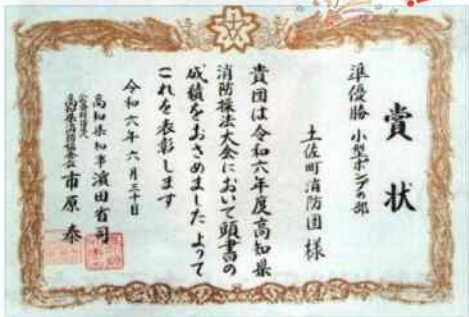 賞状
準優勝 小型ポンプの部
土佐町消防団様
貴団は令和六年度高知県
消防操法大会において頭書の
成績をおさめました よって
これを表彰します
令和六年六月三十日
高知県知事 濵田省司
高知県消防協会長 市原泰